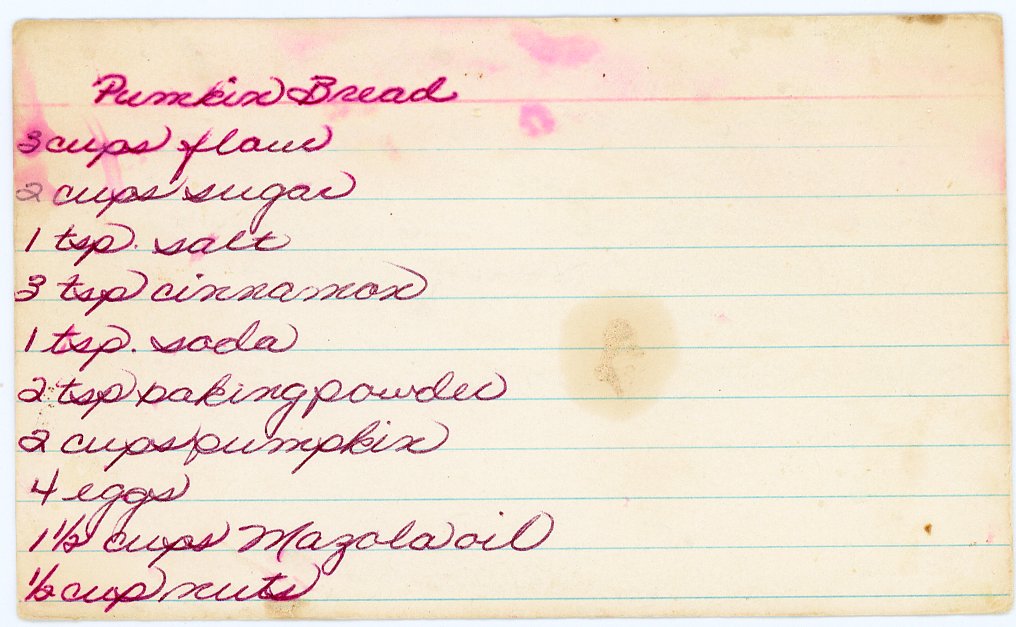 Pumkin Bread
3 cups flour
2 cups sugar
1 tsp. salt
3 tsp cinnamon
1 tsp. soda
2 tsp baking powder
2 cups pumpkin
4 eggs
1 1/2 cups Mazola oil
1/2 cup nuts